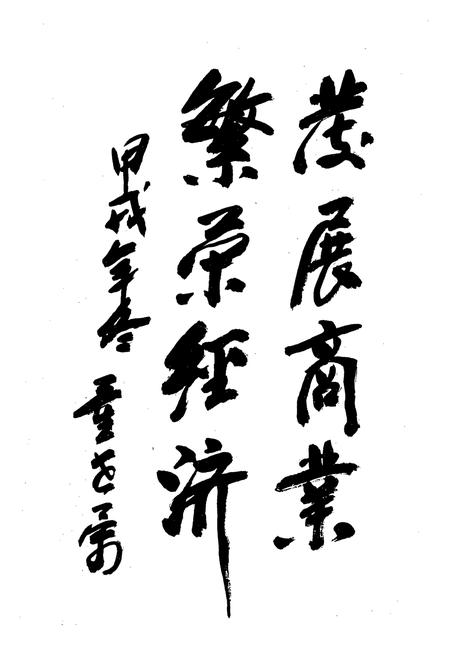 發展商業
繁荣經济
甲戌年冬